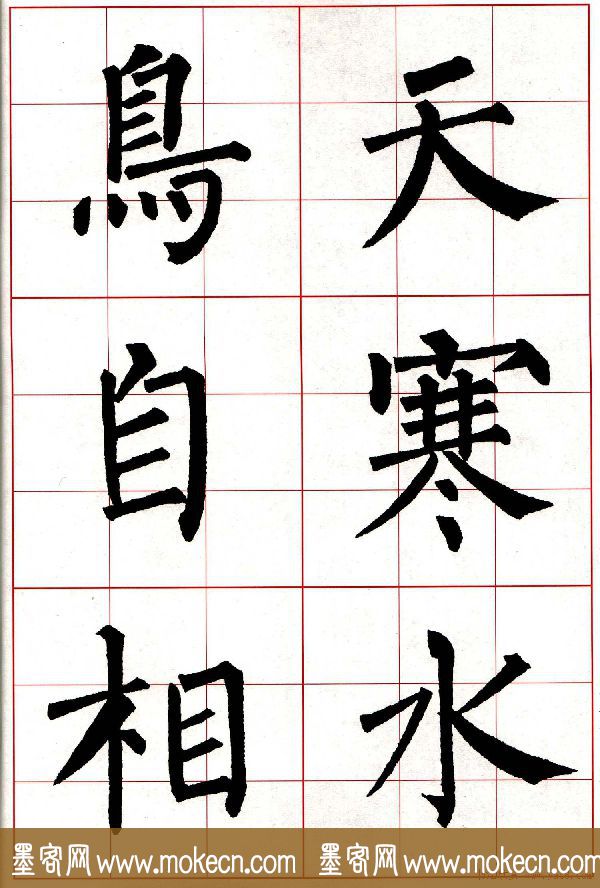 天寒水
鳥自相
墨客网 www.mokecn.com 墨客网 www.mokecn.com